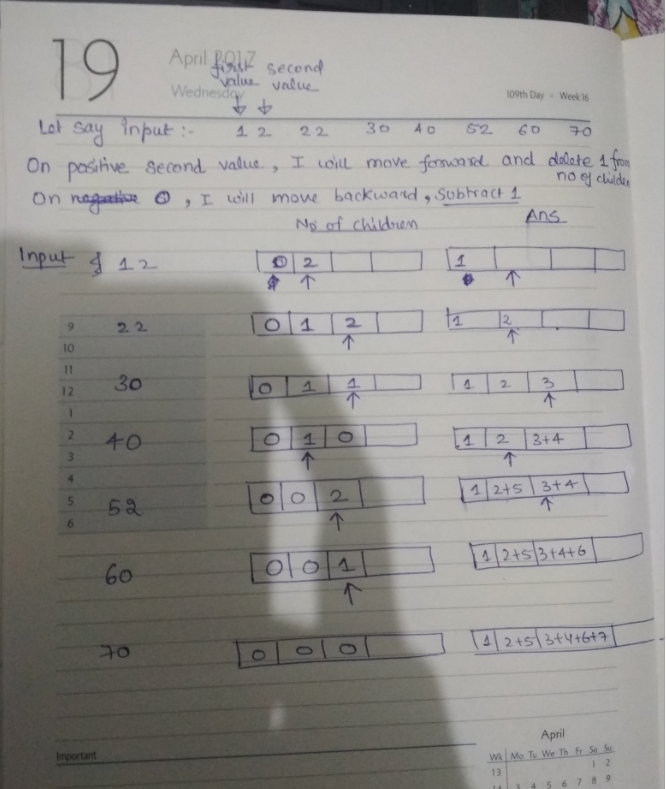 19
April 2017
Wednesday
first second
value value
109th Day - Week 16
Let say input :- 1 2 2 2 3 0 4 0 5 2 6 0 7 0
On positive second value, I will move forward and delete 1 from
no of children
On negative 0, I will move backward, subtract 1
No of children Ans
Input 1 2 0 2 1
9 2 2 0 1 2 1 2
10
11
12 3 0 0 1 1 1 2 3
1
2 4 0 0 1 0 1 2 3+4
3
4
5 5 2 0 0 2 1 2+5 3+4
6
6 0 0 0 1 1 2+5 3+4+6
7 0 0 0 0 1 2+5 3+4+6+7
Important
April
Wk Mo Tu We Th Fr Sa Su
13 1 2
14 3 4 5 6 7 8 9